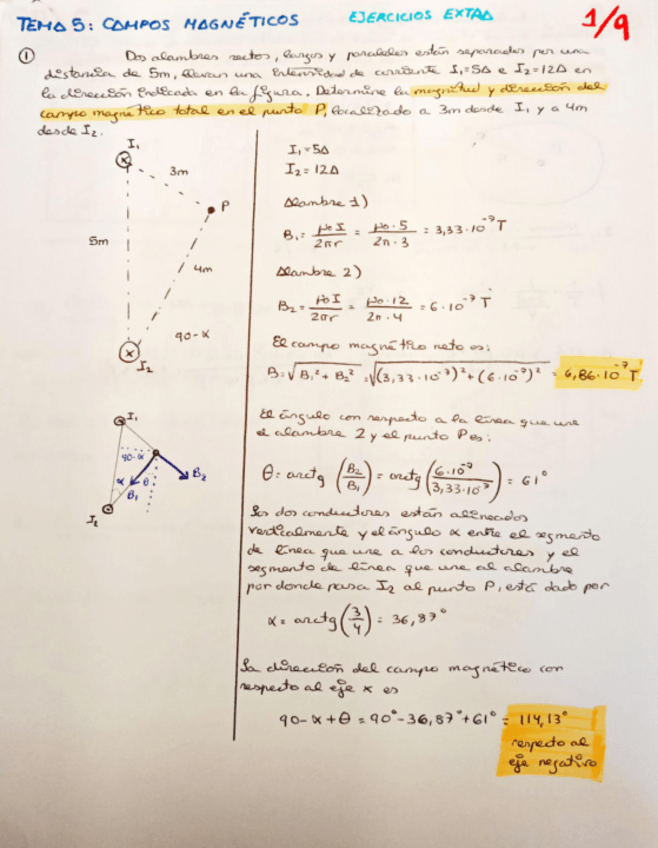 TEMA 5: CAMPOS MAGNÉTICOS EJERCICIOS EXTRA 1/9
① Dos alambres rectos, largos y paralelos están separados por una
distancia de 5m, llevan una intensidad de corriente I₁=5A e I₂=12A en
la dirección indicada en la figura. Determine la magnitud y dirección del
campo magnético total en el punto P, localizado a 3m desde I₁ y a 4m
desde I₂.
I₁
3m
P
5m
4m
90-α
I₂
I₁=5A
I₂=12A
Alambre 1)
B₁= μ₀I/2πr = μ₀·5/2π·3 = 3,33·10⁻⁷ T
Alambre 2)
B₂= μ₀I/2πr = μ₀·12/2π·4 = 6·10⁻⁷ T
El campo magnético neto es:
B=√B₁²+B₂² =√(3,33·10⁻⁷)²+(6·10⁻⁷)² = 6,86·10⁻⁷ T
I₁
90-α
α θ
B₁
B₂
I₂
El ángulo con respecto a la línea que une
el alambre 2 y el punto P es:
θ= arctg (B₂/B₁) = arctg (6·10⁻⁷/3,33·10⁻⁷) = 61°
Los dos conductores están alineados
verticalmente y el ángulo α entre el segmento
de línea que une a los conductores y el
segmento de línea que une al alambre
por donde pasa I₂ al punto P, está dado por
α= arctg(3/4) = 36,87°
La dirección del campo magnético con
respecto al eje x es
90-α+θ = 90°-36,87°+61° = 114,13°
respecto al
eje negativo